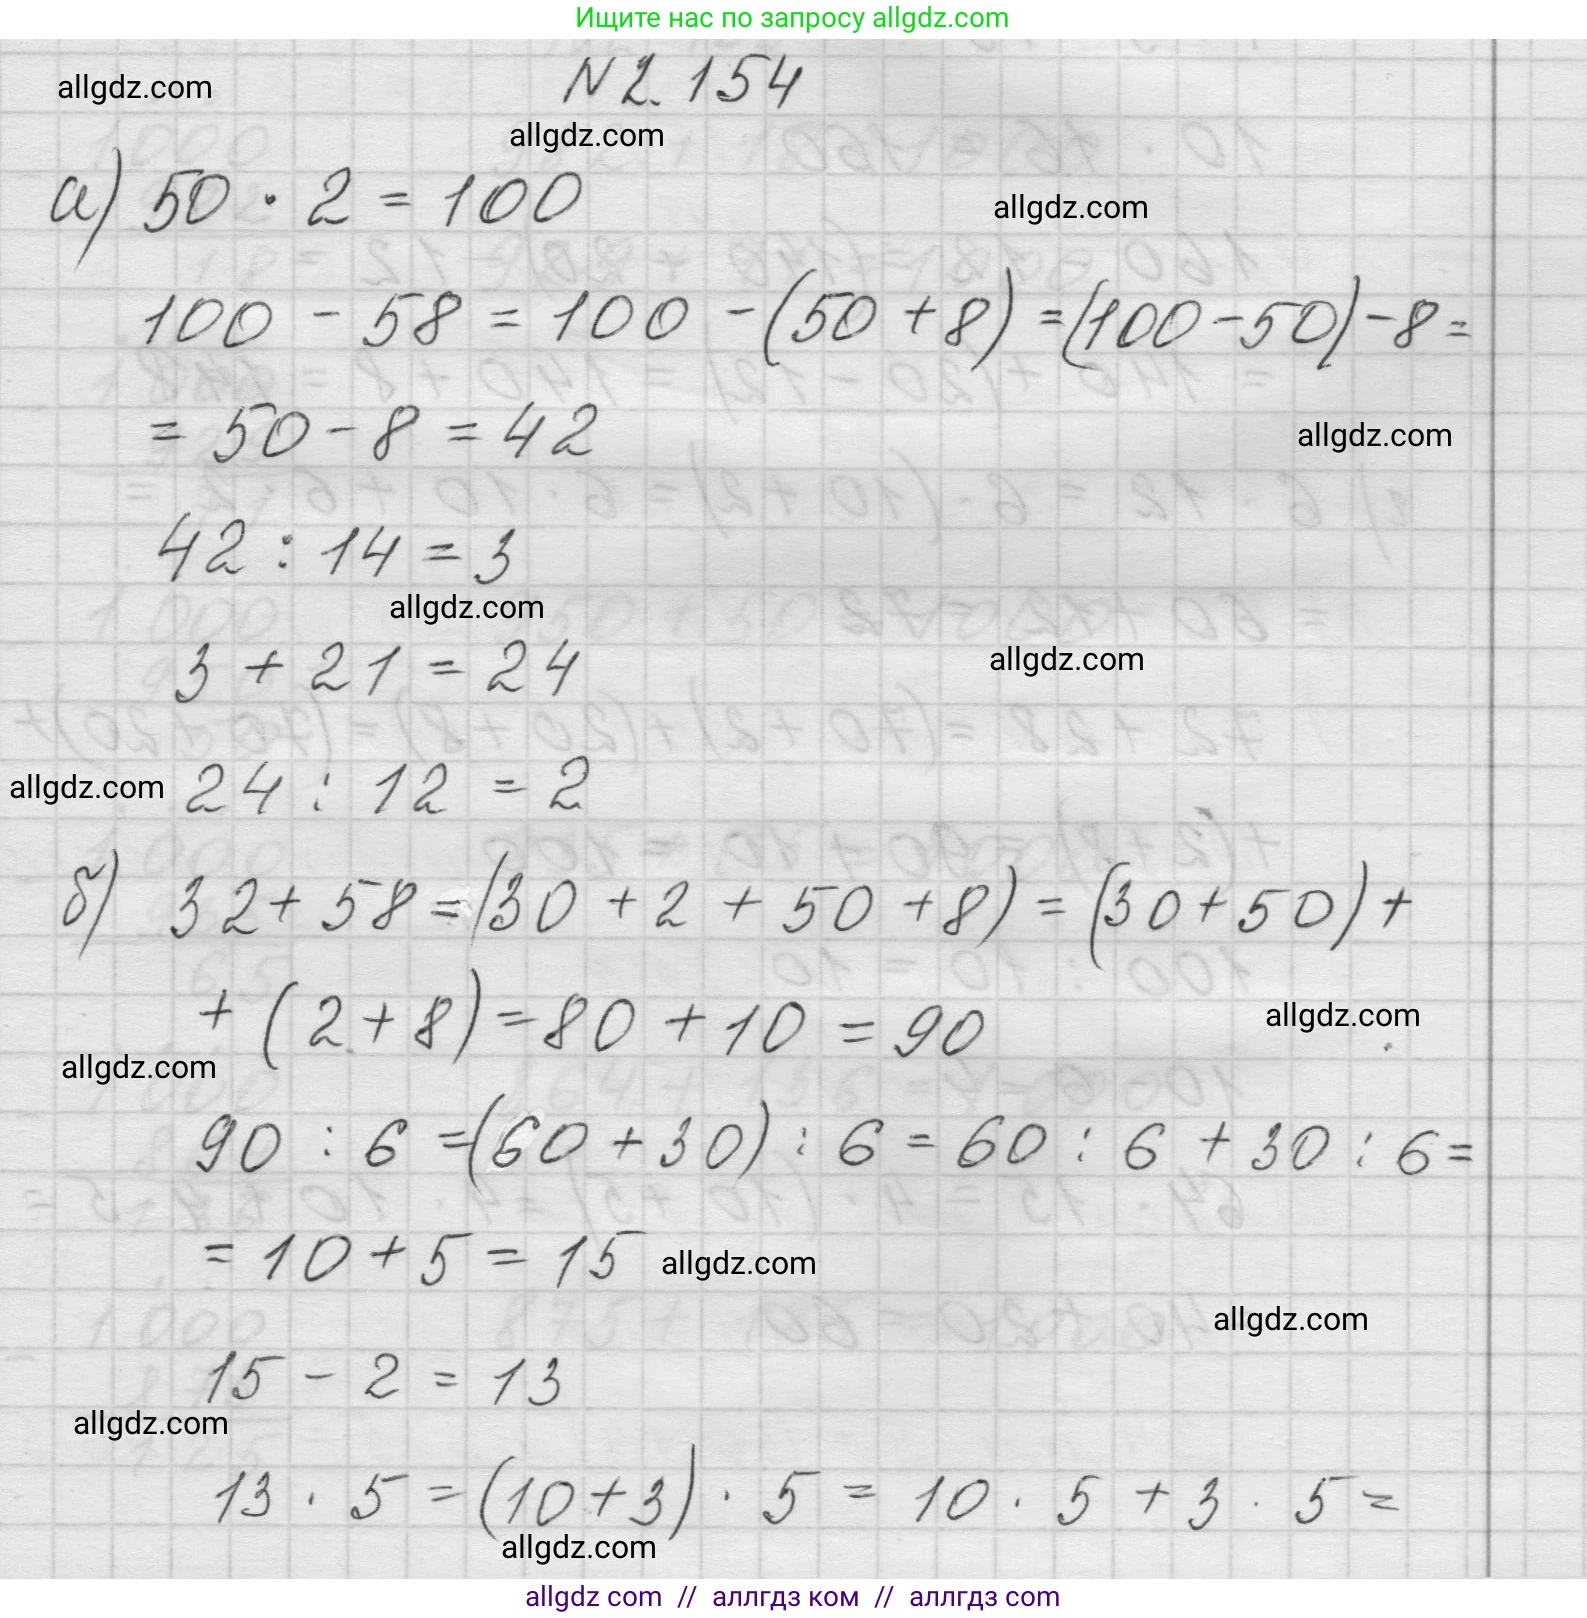 Ищите нас по запросу allgdz.com
allgdz.com
N 2. 154
allgdz.com
а) 50 · 2 = 100
allgdz.com
100 - 58 = 100 - (50 + 8) = (100 - 50) - 8 =
= 50 - 8 = 42
allgdz.com
42 : 14 = 3
allgdz.com
3 + 21 = 24
allgdz.com
allgdz.com
24 : 12 = 2
б) 32 + 58 = (30 + 2 + 50 + 8) = (30 + 50) +
+ (2 + 8) = 80 + 10 = 90
allgdz.com
allgdz.com
90 : 6 = (60 + 30) : 6 = 60 : 6 + 30 : 6 =
= 10 + 5 = 15
allgdz.com
allgdz.com
15 - 2 = 13
allgdz.com
13 · 5 = (10 + 3) · 5 = 10 · 5 + 3 · 5 =
allgdz.com
allgdz com // аллгдз ком // аллгдз com